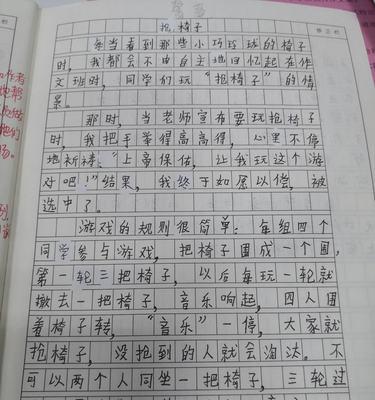 抢椅子
每当看到那些小巧玲珑的椅子
时，我都会不由自主地回忆起在作
文班时，同学们玩“抢椅子”的情
景。
那时，当老师宣布要玩抢椅子
时，我把手举得高高得，心里不停
地祈祷：“上帝保佑，让我玩这个游
戏吧！”结果，我终于如愿以偿，被
选中了。
游戏的规则很简单：每组四个
同学参与游戏，把椅子围成一个圈，
第一轮三把椅子，以后每玩一轮就
撤去一把椅子，音乐响起，四人围
着椅子转，“音乐”一停，大家就
抢椅子，没抢到的人就会淘汰。不
可以两个人同坐一把椅子，三轮过